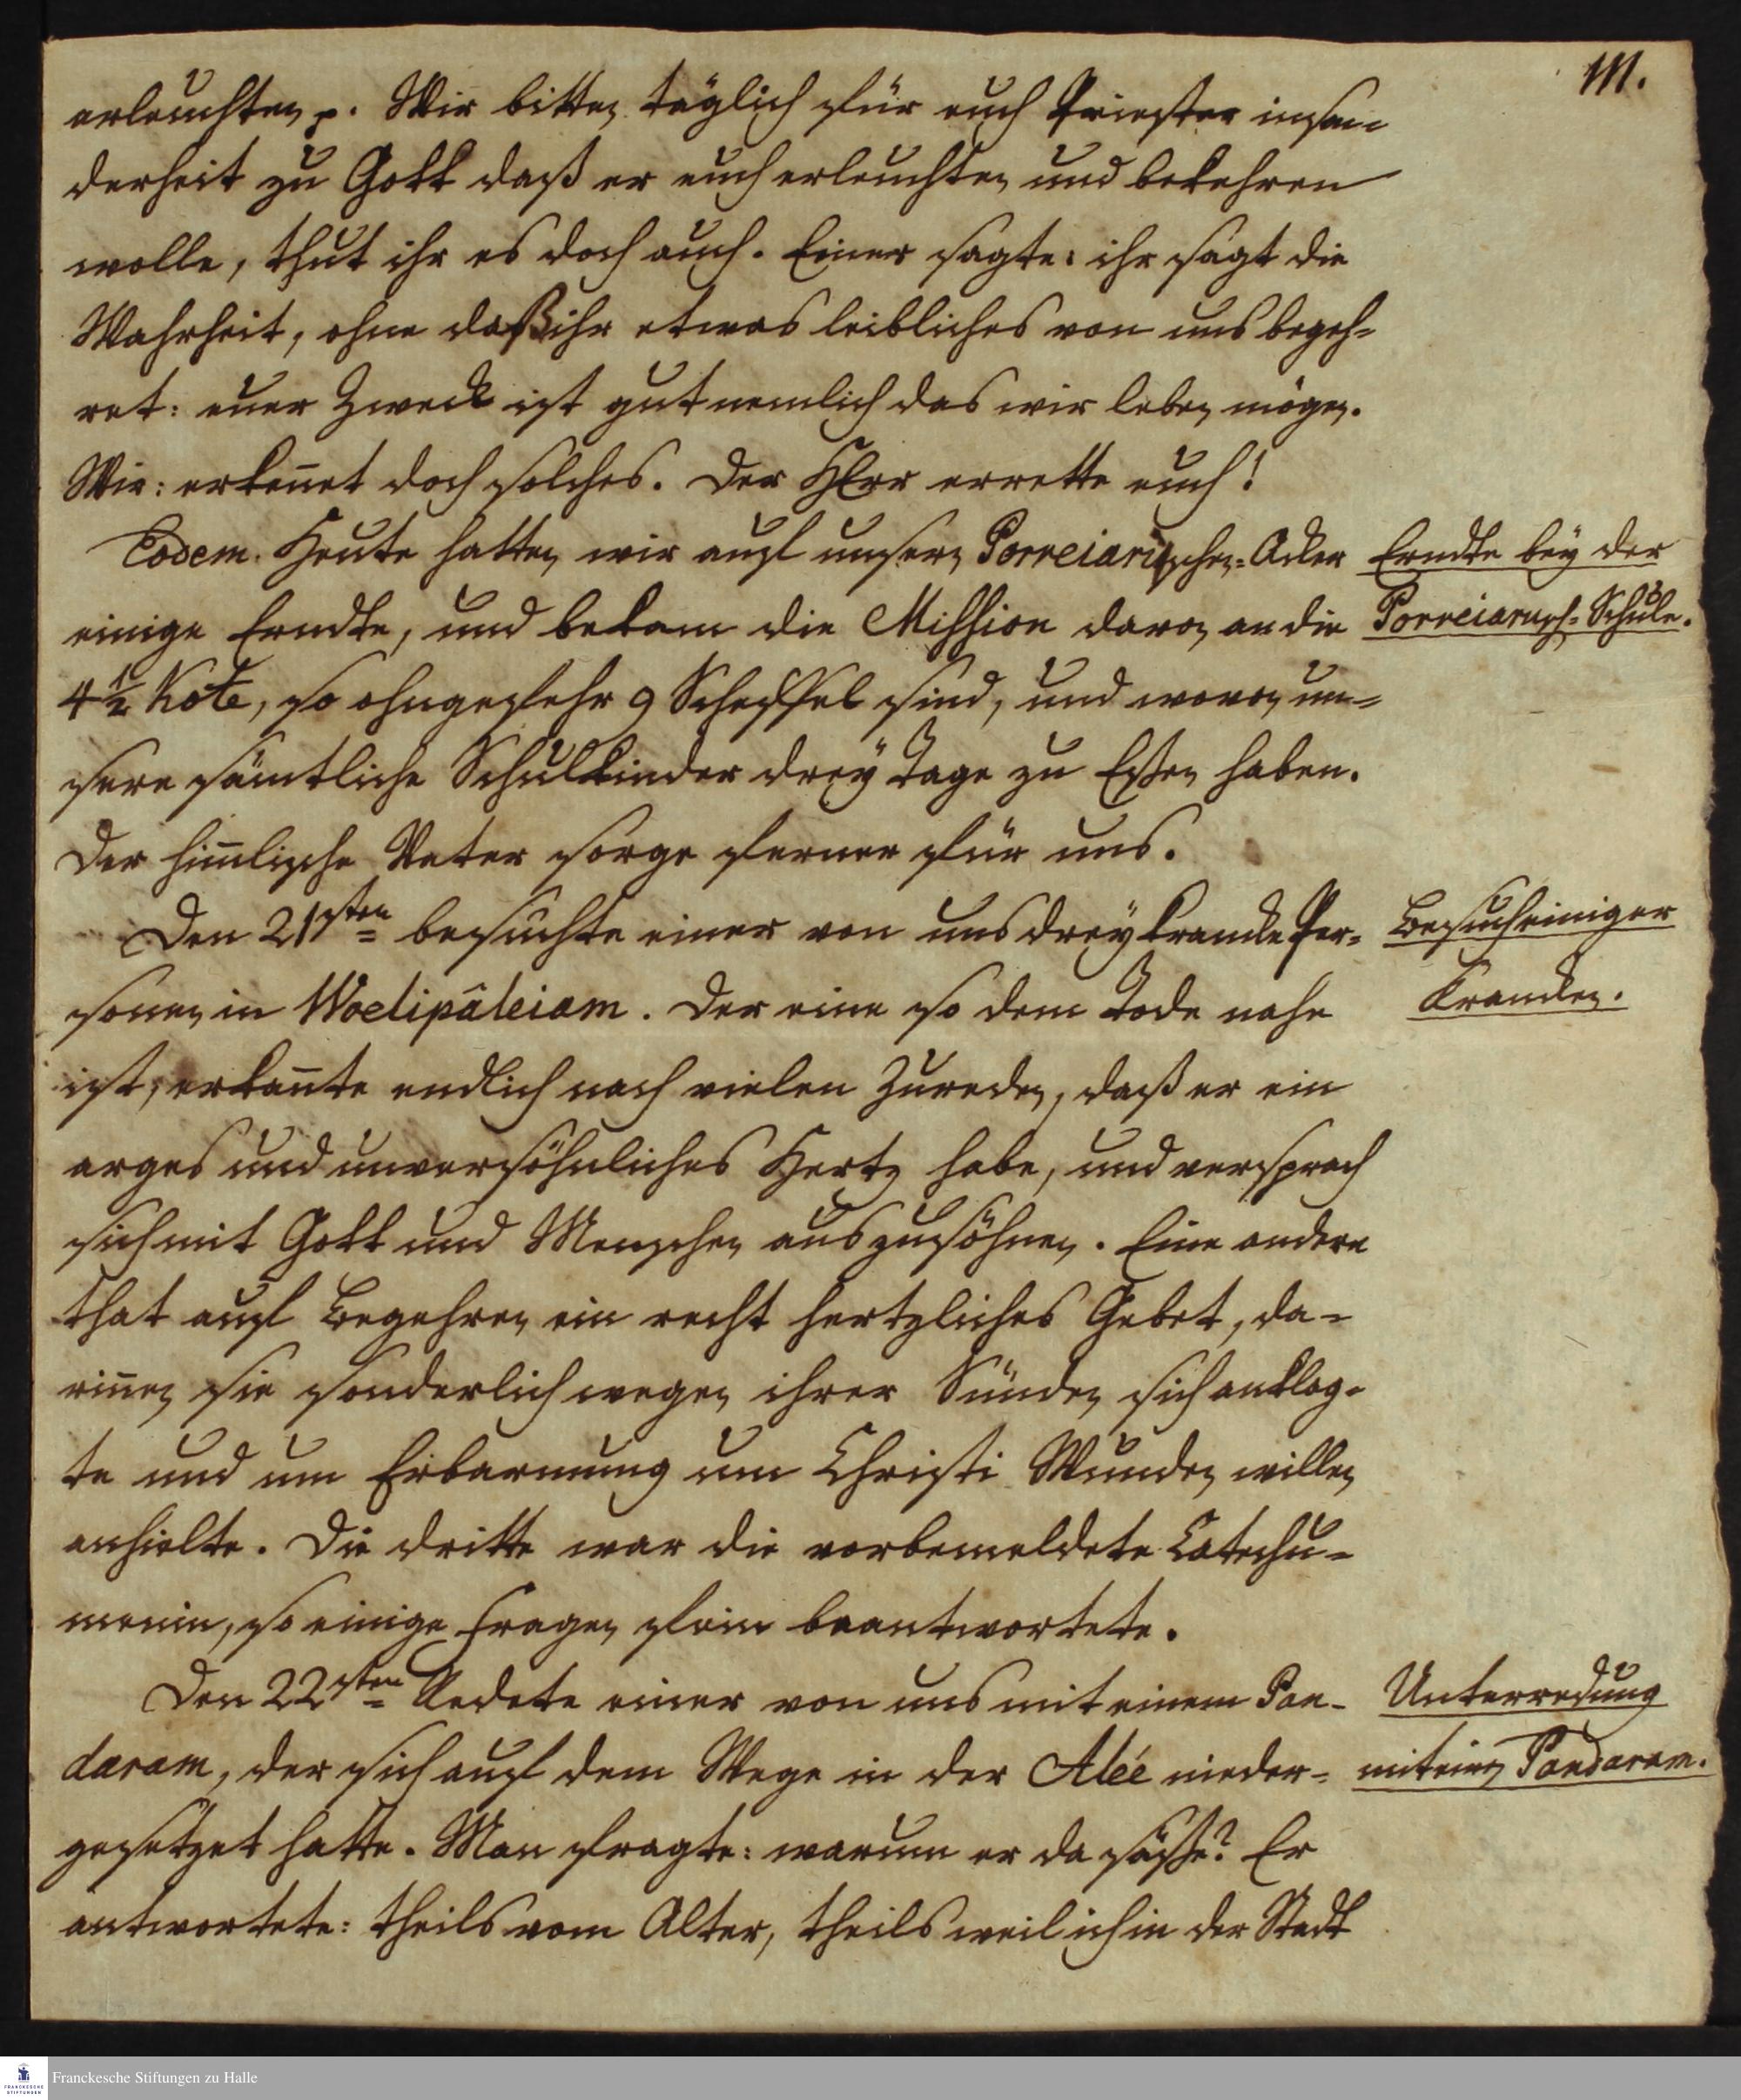 111.
erleuchten p. Wir bitten täglich für euch Priester inson-
derheit zu Gott daß er euch erleuchten und bekehren
wolle, thut ihr es doch auch. Einer sagte: ihr sagt die
Wahrheit, ohne daß ihr etwas leibliches von uns begeh-
ret: euer Zweck ist gut nemlich das wir leben mögen.
Wir: erkeñet doch solches. Der HErr errette euch!
Eodem. Heute hatten wir auf unsern Porreiarischen-Acker
einige Erndte, und bekam die Mission davon an die
4½ Kote, so ohngefehr 9 Scheffel sind, und wovon un-
sere sämtliche Schulkinder drey Tage zu Eßen haben.
Der him̃lische Vater sorge ferner für uns.
Erndte bey der
Porreiarisch-Schule.
Den 21sten besuchte einer von uns drey krancke Per-
sonen in Woelipâleiam. Der eine so dem Tode nahe
ist, erkañte endlich nach vielen Zureden, daß er ein
arges und unversöhnliches Hertz habe, und versprach
sich mit Gott und Menschen auszusöhnen. Eine andere
that auf Begehren ein recht hertzliches Gebet, da-
riñen sie sonderlich wegen ihrer Sünden sich anklag-
te und um Erbarmung um Christi Wunden willen
anhielte. Die dritte war die vorbemeldete Catechu-
menin, so einige Fragen fein beantwortete.
Besuch einiger
Krancken.
Den 22sten Redete einer von uns mit einem Pan-
daram, der sich auf dem Wege in der Aleé nieder-
gesetzet hatte. Man fragte: warum er da säße? Er
antwortete: theils vom Alter, theils weil ich in der Stadt
Unterredung
mit einen Pandaram.
Franckesche Stiftungen zu Halle
FRANCKESCHE
STIFTUNGEN